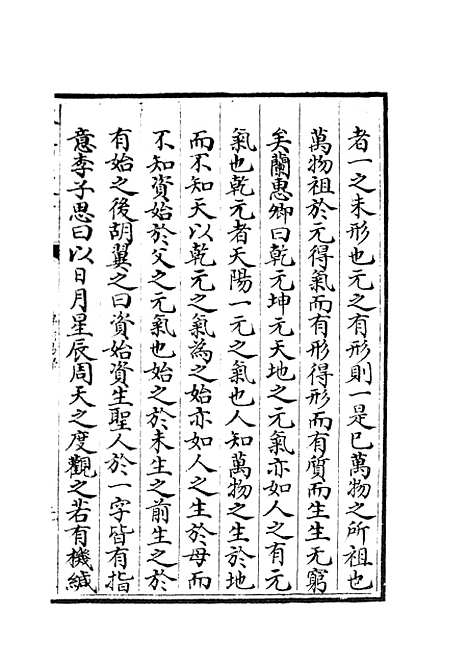 者一之未形也元之有形則一是巳萬物之所祖也
萬物祖於元得氣而有形得形而有質而生生無窮
矣蘭惠卿曰乾元坤元天地之元氣亦如人之有元
氣也乾元者天陽一元之氣也人知萬物之生於地
而不知天以乾元之氣為之始亦如人之生於母而
不知資始於父之元氣也始之於未生之前生之於
有始之後胡翼之曰資始資生聖人於一字皆有指
意李子思曰以日月星辰周天之度觀之若有機緘